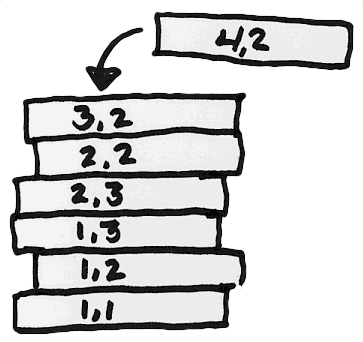 4,2
3,2
2,2
2,3
1,3
1,2
1,1